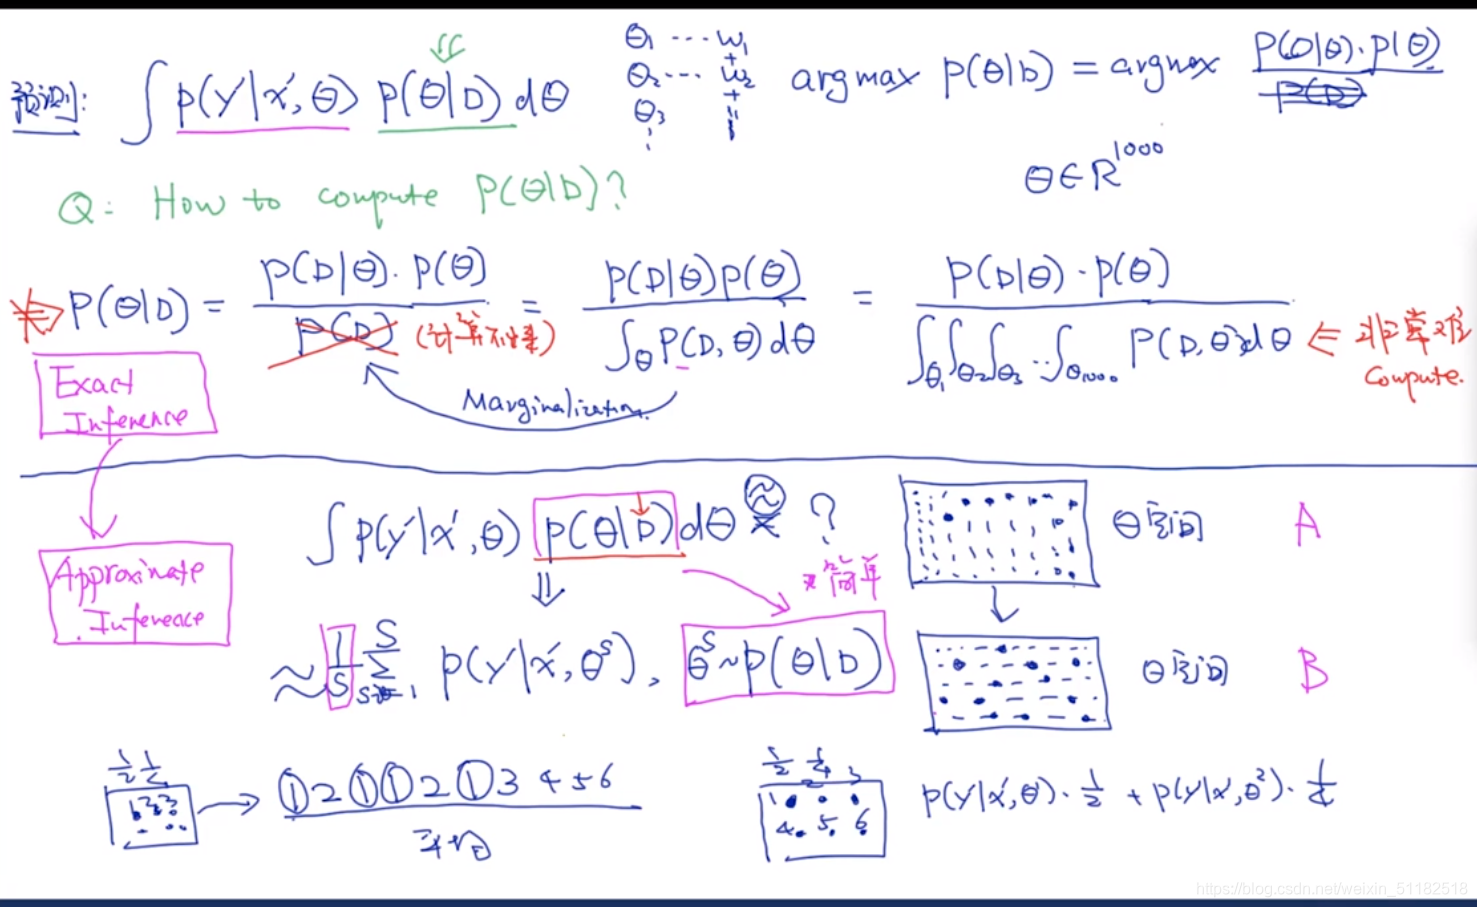 预测: ∫ p(y'|x', θ) p(θ|D) dθ
θ₁ ··· w₁
+
θ₂ ··· w₂
+
θ₃
argmax p(θ|D) = argmax P(D|θ)·P(θ) / P(D)
θ∈R¹⁰⁰⁰
Q: How to compute P(θ|D)?
P(θ|D) = P(D|θ)·P(θ) / P(D) = P(D|θ)P(θ) / ∫θ P(D,θ)dθ = P(D|θ)·P(θ) / ∫θ₁∫θ₂∫θ₃···∫θ₁₀₀₀ P(D,θ)dθ ⇐ 非常难
Compute.
Marginalization
Exact
Inference
∫ p(y'|x', θ) p(θ|D) dθ ≈ ?
θ空间 A
Approximate
Inference
简单
≈ 1/S Σ s=1 S p(y'|x', θˢ), θˢ ~ p(θ|D)
θ空间 B
1/2 1/4
① 2 ① ① 2 ① 3 4 5 6
平均
1/2 1/4
1 2 3
4. 5. 6
p(y'|x', θ¹)·1/2 + p(y'|x', θ²)·1/4
https://blog.csdn.net/weixin_51182518